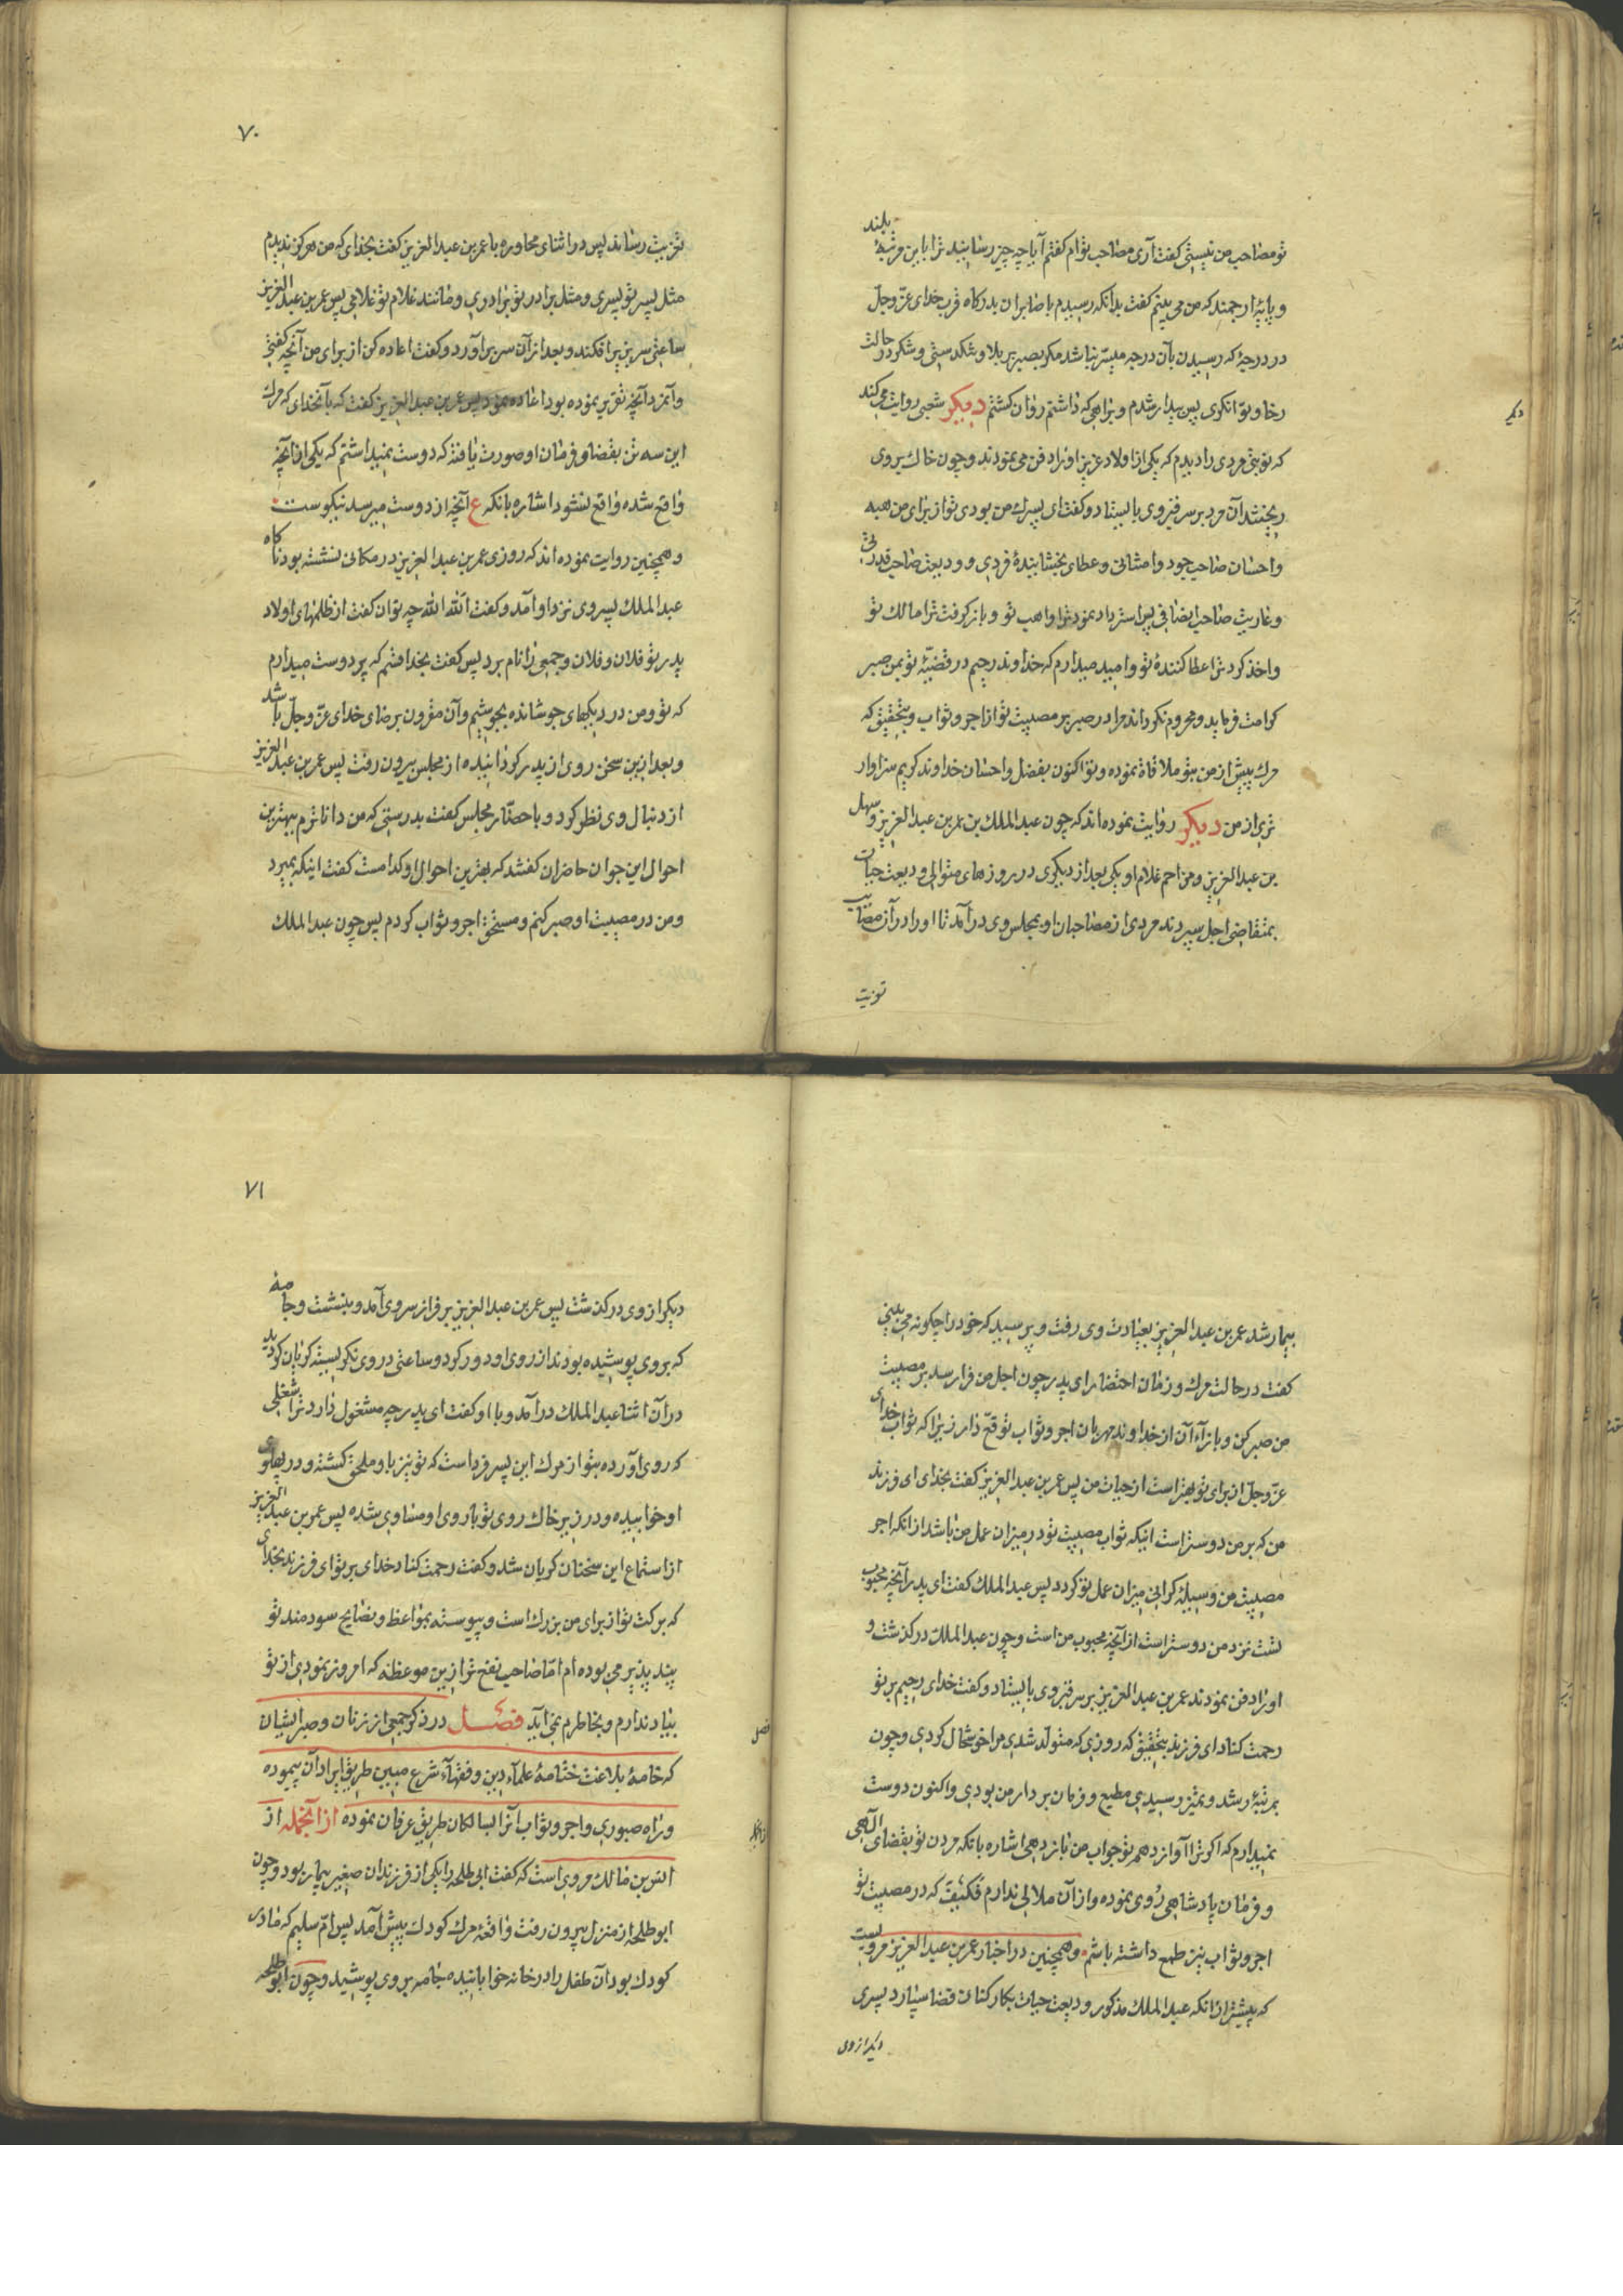 تو مصاحب من نیستی گفت آری مصاحب توام گفتم آیا چه چیز رسانید ترا باین مرتبهٔ بلند
و پایهٔ ارجمند که من می بینم گفت بدانکه رسیدم با صابران بدرکاه قرب خدای عزّ وجلّ
در درجهٔ که رسیدن بآن درجه میسّر نباشد مکر بصبر بر بلا و شکر در حالت
رخا و توانکری پس بیدار شدم و براهی که داشتم روان کشتم دیکر شعبی روایت می کند
دیکر
که نوبتی مردی را دیدم که یکی از اولاد عزیز او را دفن می نمودند و چون خاك بروی
ریختند آن مرد بر سر قبر وی بایستاد و گفت ای پسرك من بودی تو از برای من هبه
و احسان صاحب جود و امتنانی و عطای بخشایندهٔ فردی و ودیعت صاحب قدرتی
و عاریت صاحب انصافی پس استرداد نمود ترا واهب تو و باز کرفت ترا مالك تو
و اخذ کرد ترا عطا کنندهٔ تو و امید میدارم که خداوند رحیم در قضیّهٔ تو بمن صبر
کرامت فرماید و محروم نکرداند مرا در صبر بر مصیبت تو از اجر و ثواب و بتحقیق که
مرك پیش از من بتو ملاقاة نموده و تو اکنون بفضل و احسان خداوند کریم سزاوار
تری از من دیکر روایت نموده اند که چون عبد الملك بن عمر بن عبد العزیز و سهل
بن عبد العزیز و مزاحم غلام او یکی بعد از دیکری در روزهای متوالی ودیعت حیات
بمتقاضی اجل سپردند مردی از مصاحبان او بمجلس وی درآمد تا او را در آن مصایب
تعزیت
۷۰
تعزیت رساند پس در اثنای محاوره با عمر بن عبد العزیز گفت بخدای که من هرکز ندیدم
مثل پسر تو پسری و مثل برادر تو برادری و مانند غلام تو غلامی پس عمر بن عبد العزیز
ساعتی سر بزیر افکند و بعد از آن سر برآورد و گفت اعاده کن از برای من آنچه گفتی
و آنمرد آنچه تقریر نموده بود اعاده نمود پس عمر بن عبد العزیز گفت که بآنخدای که مرك
این سه تن بقضا و فرمان او صورت یافته که دوست نمیداشتم که یکی از آنچه
واقع شده واقع نشود اشاره بانکه ع آنچه از دوست میرسد نیکوست
و همچنین روایت نموده اند که روزی عمر بن عبد العزیز در مکانی نشسته بود ناکاه
عبد الملك پسر وی نزد او آمد و گفت الله الله چه توان گفت از ظلمهای اولاد
پدر تو فلان و فلان و جمعی را نام برد پس گفت بخدا قسم که پر دوست میدارم
که تو و من در دیکهای جوشانده بجوشیم و آن مقرون برضای خدای عزّ وجلّ باشد
و بعد ازین سخن روی از پدر کردانیده از مجلس بیرون رفت پس عمر بن عبد العزیز
از دنبال وی نظر کرد و با حضّار مجلس گفت بدرستی که من داناترم ببهترین
احوال این جوان حاضران گفتند که بهترین احوال او کدامست گفت اینکه بمیرد
و من در مصیبت او صبر کنم و مستحق اجر و ثواب کردم پس چون عبد الملك
بیمار شد عمر بن عبد العزیز بعیادت وی رفت و پرسید که خود را چکونه می بینی
گفت در حالت مرك و زمان احتضار ای پدر چون اجل من فرا رسد بر مصیبت
من صبر کن و بازآء آن از خداوند مهربان اجر و ثواب توقّع دار زیرا که ثواب خدای
عزّ وجلّ از برای تو بهتر است از حیات من پس عمر بن عبد العزیز گفت بخدای ای فرزند
من که بر من دوستر است اینکه ثواب مصیبت تو در میزان عمل من باشد از انکه اجر
مصیبت من وسیلهٔ کرانی میزان عمل تو کردد پس عبد الملك گفت ای پدر آنچه محبوب
تست نزد من دوستر است از آنچه محبوب من است و چون عبد الملك درکذشت و
او را دفن نمودند عمر بن عبد العزیز بر سر قبر وی بایستاد و گفت خدای رحیم بر تو
رحمت کناد ای فرزند بتحقیق که روزی که متولّد شدی مرا خوشحال کردی و چون
بمرتبهٔ رشد و تمیز رسیدی مطیع و فرمان بردار من بودی و اکنون دوست
نمیدارم که اکر ترا آواز دهم تو جواب من باز دهی اشاره بانکه مردن تو بقضای الٓهی
و فرمان پادشاهی روی نموده و از آن ملالی ندارم فکیف که در مصیبت تو
اجر و ثواب نیز طمع داشته باشم و همچنین در اخبار عمر بن عبد العزیز مرویست
که پیشتر از انکه عبد الملك مذکور ودیعت حیات بکارکنان قضا سپارد پسری
دیکر از وی
۷۱
دیکر از وی درکذشت پس عمر بن عبد العزیز بر فراز سر وی آمد و بنشست و جامهٔ
که بر وی پوشیده بودند از روی او دور کرد و ساعتی در وی نکریسته کریان کردید
در آن اثنا عبد الملك درآمد و با او گفت ای پدر چه مشغول دارد ترا شغلی
که روی آورده بتو از مرك این پسر فرداست که تو نیز باو ملحق کشته و در پهلوی
او خوابیده و در زیر خاك روی تو با روی او مساوی شده پس عمر بن عبد العزیز
از استماع این سخنان کریان شد و گفت رحمت کناد خدای بر تو ای فرزند بخدای
که برکت تو از برای من بزرك است و پیوسته بمواعظ و نصایح سودمند تو
پند پذیر می بوده ام امّا صاحب نفع تر ازین موعظه که امروز نمودی از تو
بیاد ندارم و بخاطرم نمی آید فصل در ذکر جمعی از زنان و صبر ایشان
فصل
که خامهٔ بلاغت ختامهٔ علمآء دین و فقهآء شرع مبین طریق ایراد آن پیموده
و راه صبوری و اجر و ثواب آنرا بسالکان طریق عرفان نموده از آنجمله از
از آنجمله
انس بن مالك مروی است که گفت ابی طلحه را یکی از فرزندان صغیر بیمار بود و چون
ابو طلحه از منزل بیرون رفت واقعهٔ مرك کودك پیش آمد پس امّ سلیم که مادر
کودك بود آن طفل را در خانه خوابانیده جامه بر وی پوشید و چون ابو طلحه